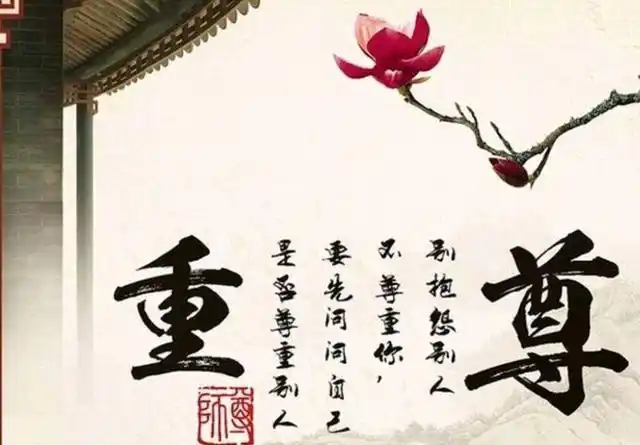 尊
别抱怨别人
不尊重你，
要先问问自己
是否尊重别人
重
尊師